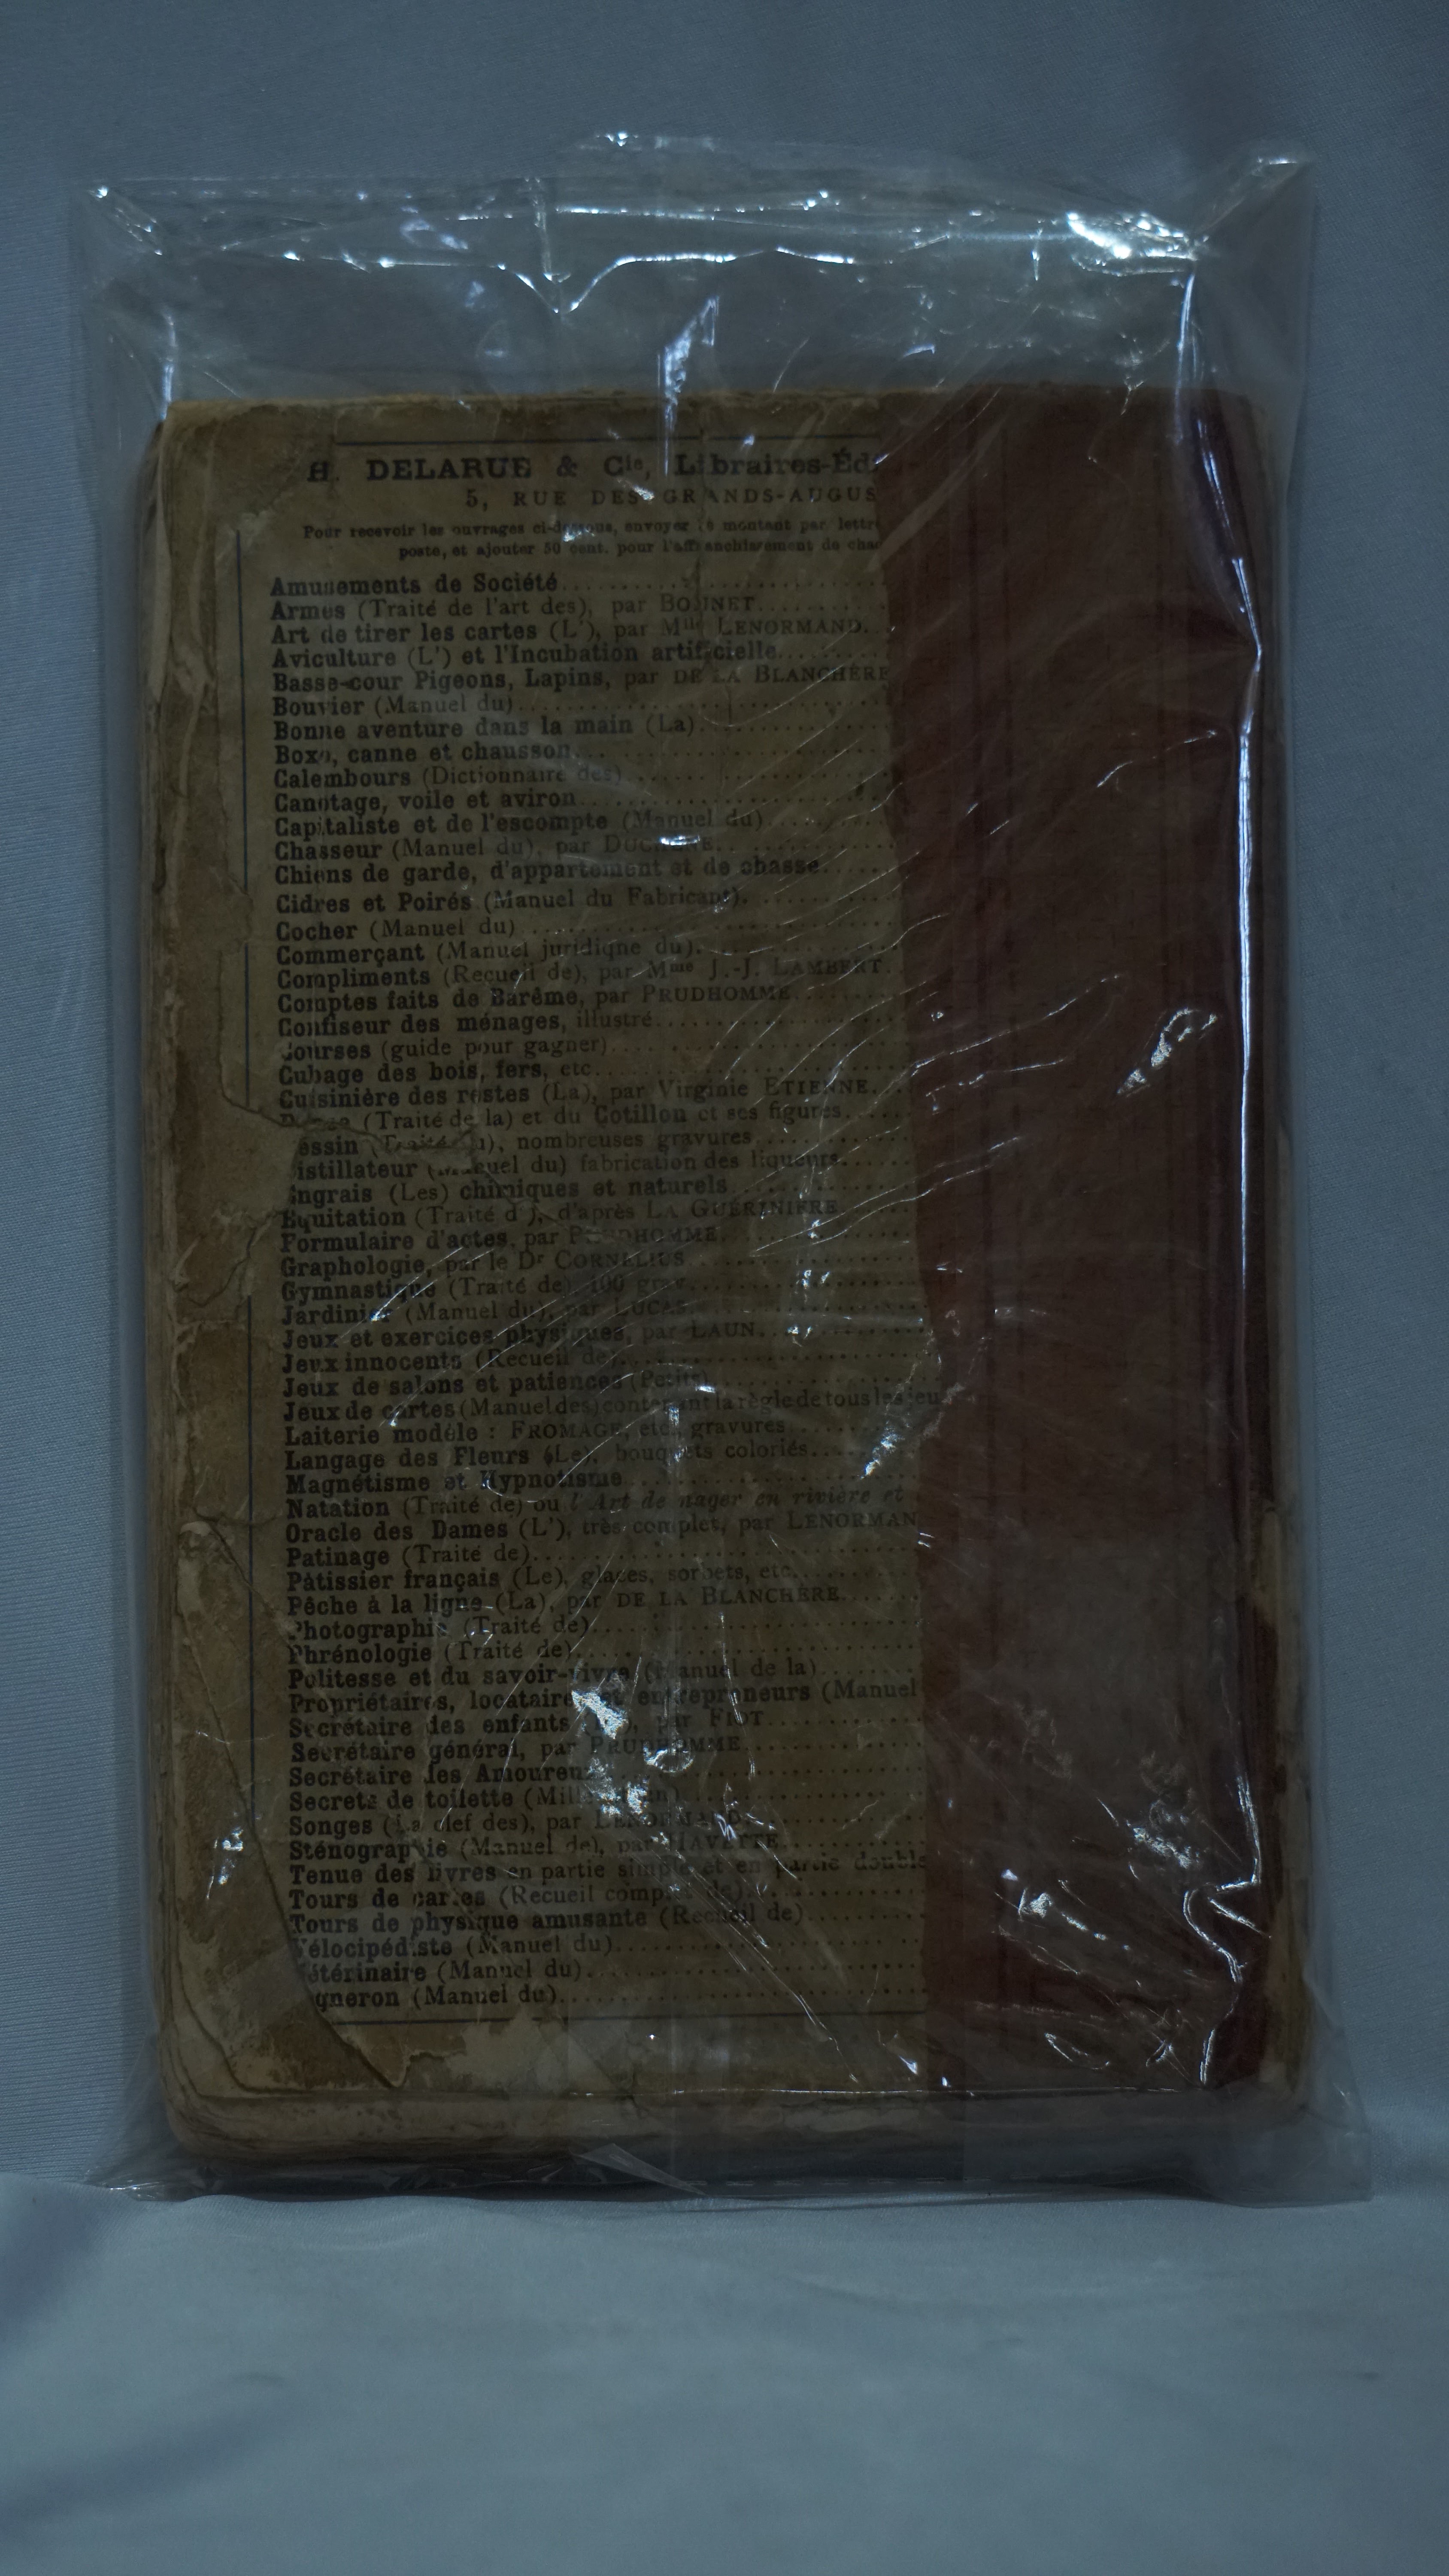 H. DELARUE & Cie, Libraires-Éd
5, RUE DES GRANDS-AUGUS
Pour recevoir les ouvrages ci-dessous, envoyer le montant par lettr
poste, et ajouter 50 cent. pour l'affranchissement de cha
Amusements de Société
Armes (Traité de l'art des), par BONNET
Art de tirer les cartes (L'), par Mlle LENORMAND.
Aviculture (L') et l'Incubation artificielle
Basse-cour Pigeons, Lapins, par DE LA BLANCHÈRE
Bouvier (Manuel du)
Bonne aventure dans la main (La)
Boxe, canne et chausson
Calembours (Dictionnaire des)
Canotage, voile et aviron
Capitaliste et de l'escompte (Manuel du)
Chasseur (Manuel du), par
Chiens de garde, d'appartement et de chasse
Cidres et Poirés (Manuel du Fabricant)
Cocher (Manuel du)
Commerçant (Manuel juridique du)
Compliments (Recueil de), par Mme J.-J. LAMBERT.
Comptes faits de Barême, par PRUDHOMME
Confiseur des ménages, illustré
Courses (guide pour gagner)
Cubage des bois, fers, etc
Cuisinière des restes (La), par Virginie ETIENNE
Danse (Traité de la) et du Cotillon et ses figures
essin (Traité du), nombreuses gravures
istillateur (Manuel du) fabrication des liqueurs
ngrais (Les) chimiques et naturels
Equitation (Traité d'), d'après LA GUÉRINIÈRE
Formulaire d'actes, par PRUDHOMME
Graphologie, par le Dr CORNELIUS
Gymnastique (Traité de) 100 grav
Jardinier (Manuel du), par LUCAS
Jeux et exercices physiques, par LAUN
Jeux innocents (Recueil de)
Jeux de salons et patiences (Petits)
Jeux de cartes (Manuel des) contenant la règle de tous les jeu
Laiterie modèle : FROMAGE, etc., gravures
Langage des Fleurs (Le), bouquets coloriés
Magnétisme et Hypnotisme
Natation (Traité de) ou l'Art de nager en rivière et
Oracle des Dames (L'), très complet, par LENORMAN
Patinage (Traité de)
Pâtissier français (Le), glaces, sorbets, etc
Pêche à la ligne (La), par DE LA BLANCHÈRE
Photographie (Traité de)
Phrénologie (Traité de)
Politesse et du savoir-vivre (Manuel de la)
Propriétaires, locataires et entrepreneurs (Manuel
Secrétaire des enfants par FIOT
Secrétaire général, par PRUDHOMME
Secrétaire des Amoureux
Secrets de toilette
Songes (La clef des), par LENORMAND
Sténographie (Manuel de), par HAVETTE
Tenue des livres en partie simple et en partie double
Tours de cartes (Recueil complet de)
Tours de physique amusante (Recueil de)
Vélocipédiste (Manuel du)
étérinaire (Manuel du)
gneron (Manuel du)